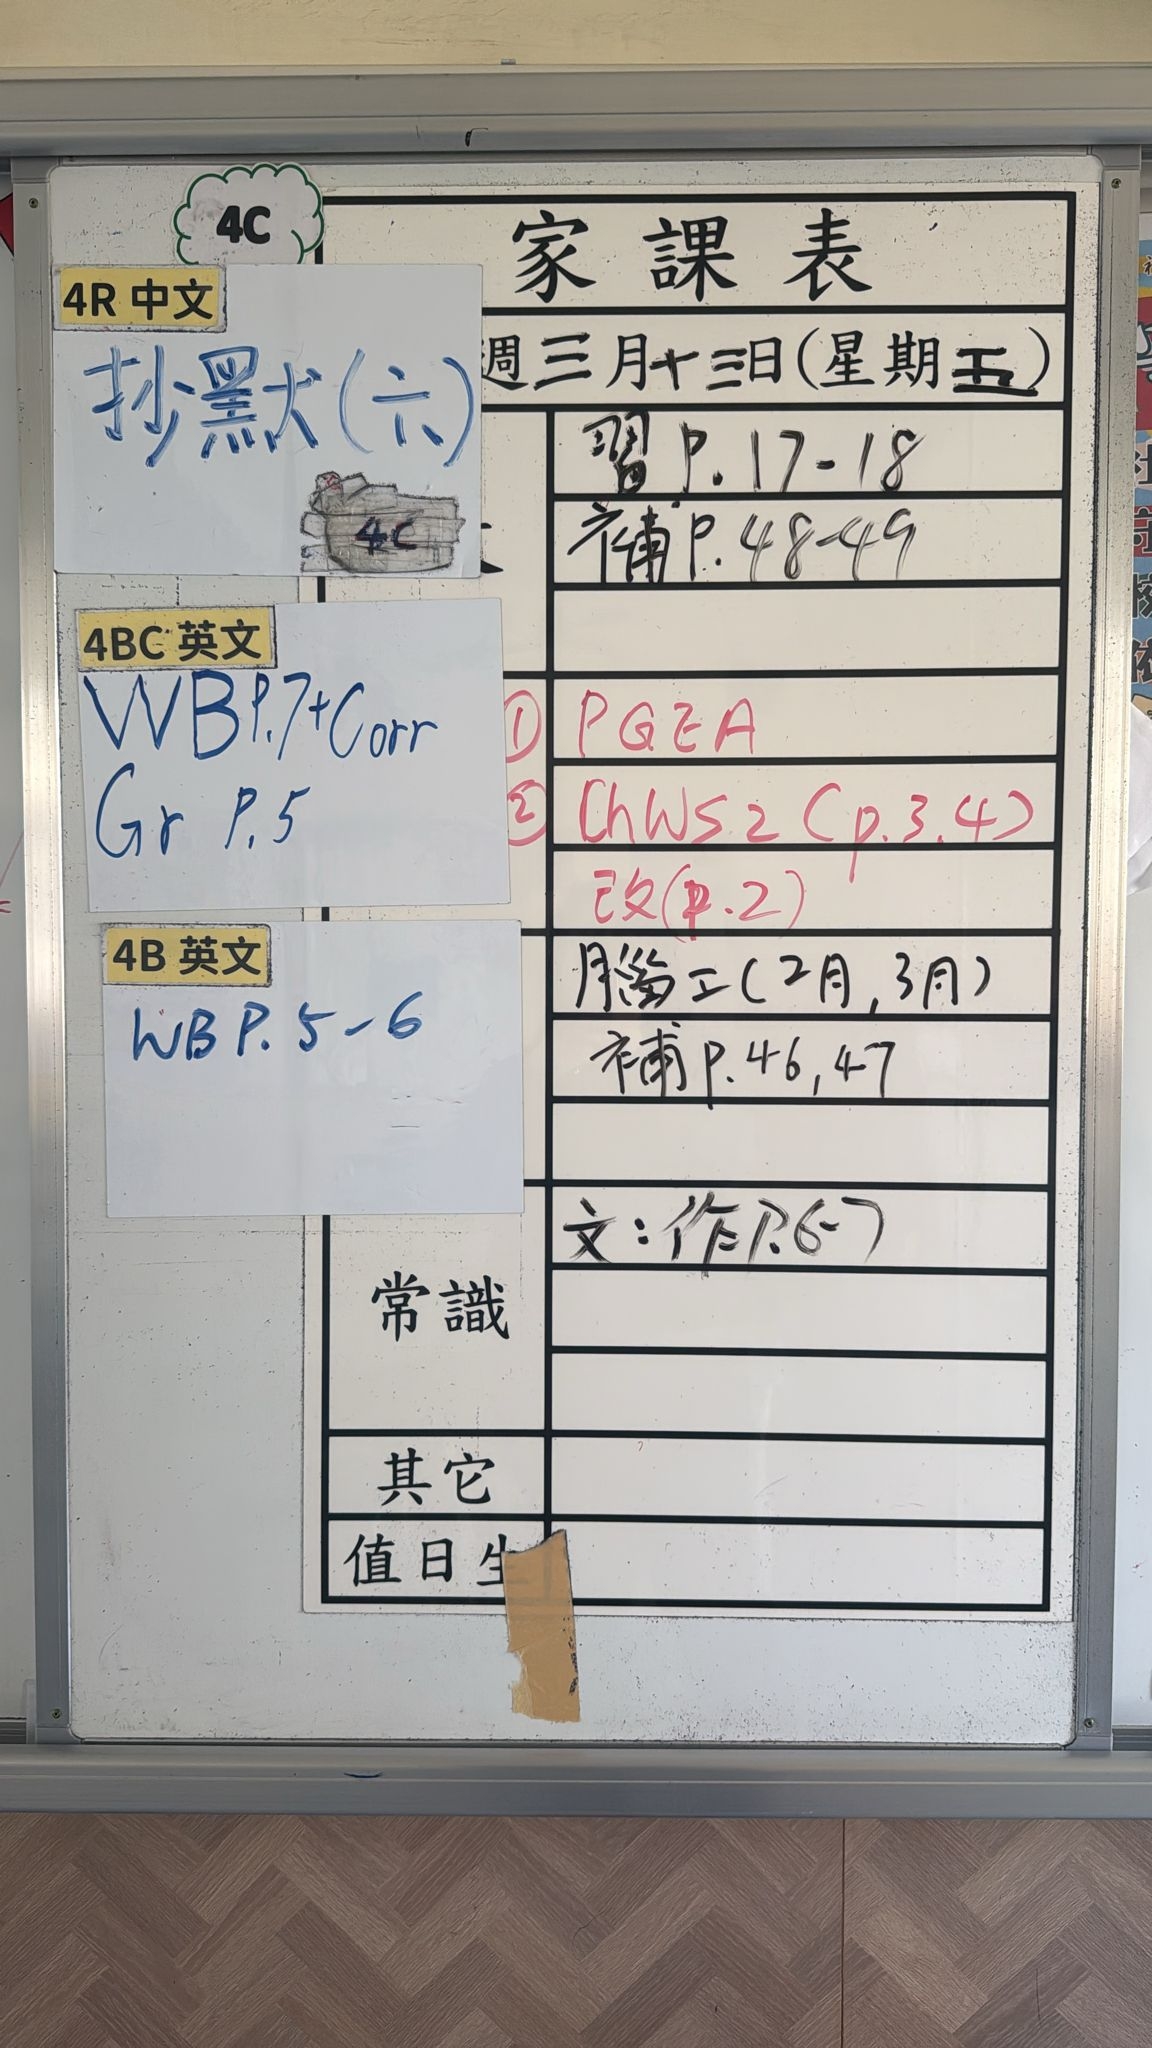 4C
家課表
週三月十三日(星期五)
4R 中文
抄默(六)
4C
習P.17-18
補P.48-49
4BC 英文
WBP.7+Corr
Gr P.5
① PGEA
② ChWS2(p.3.4)
改(p.2)
4B 英文
WBP.5-6
腦工(2月,3月)
補P.46,47
常識
文:作P.6-7
其它
值日生